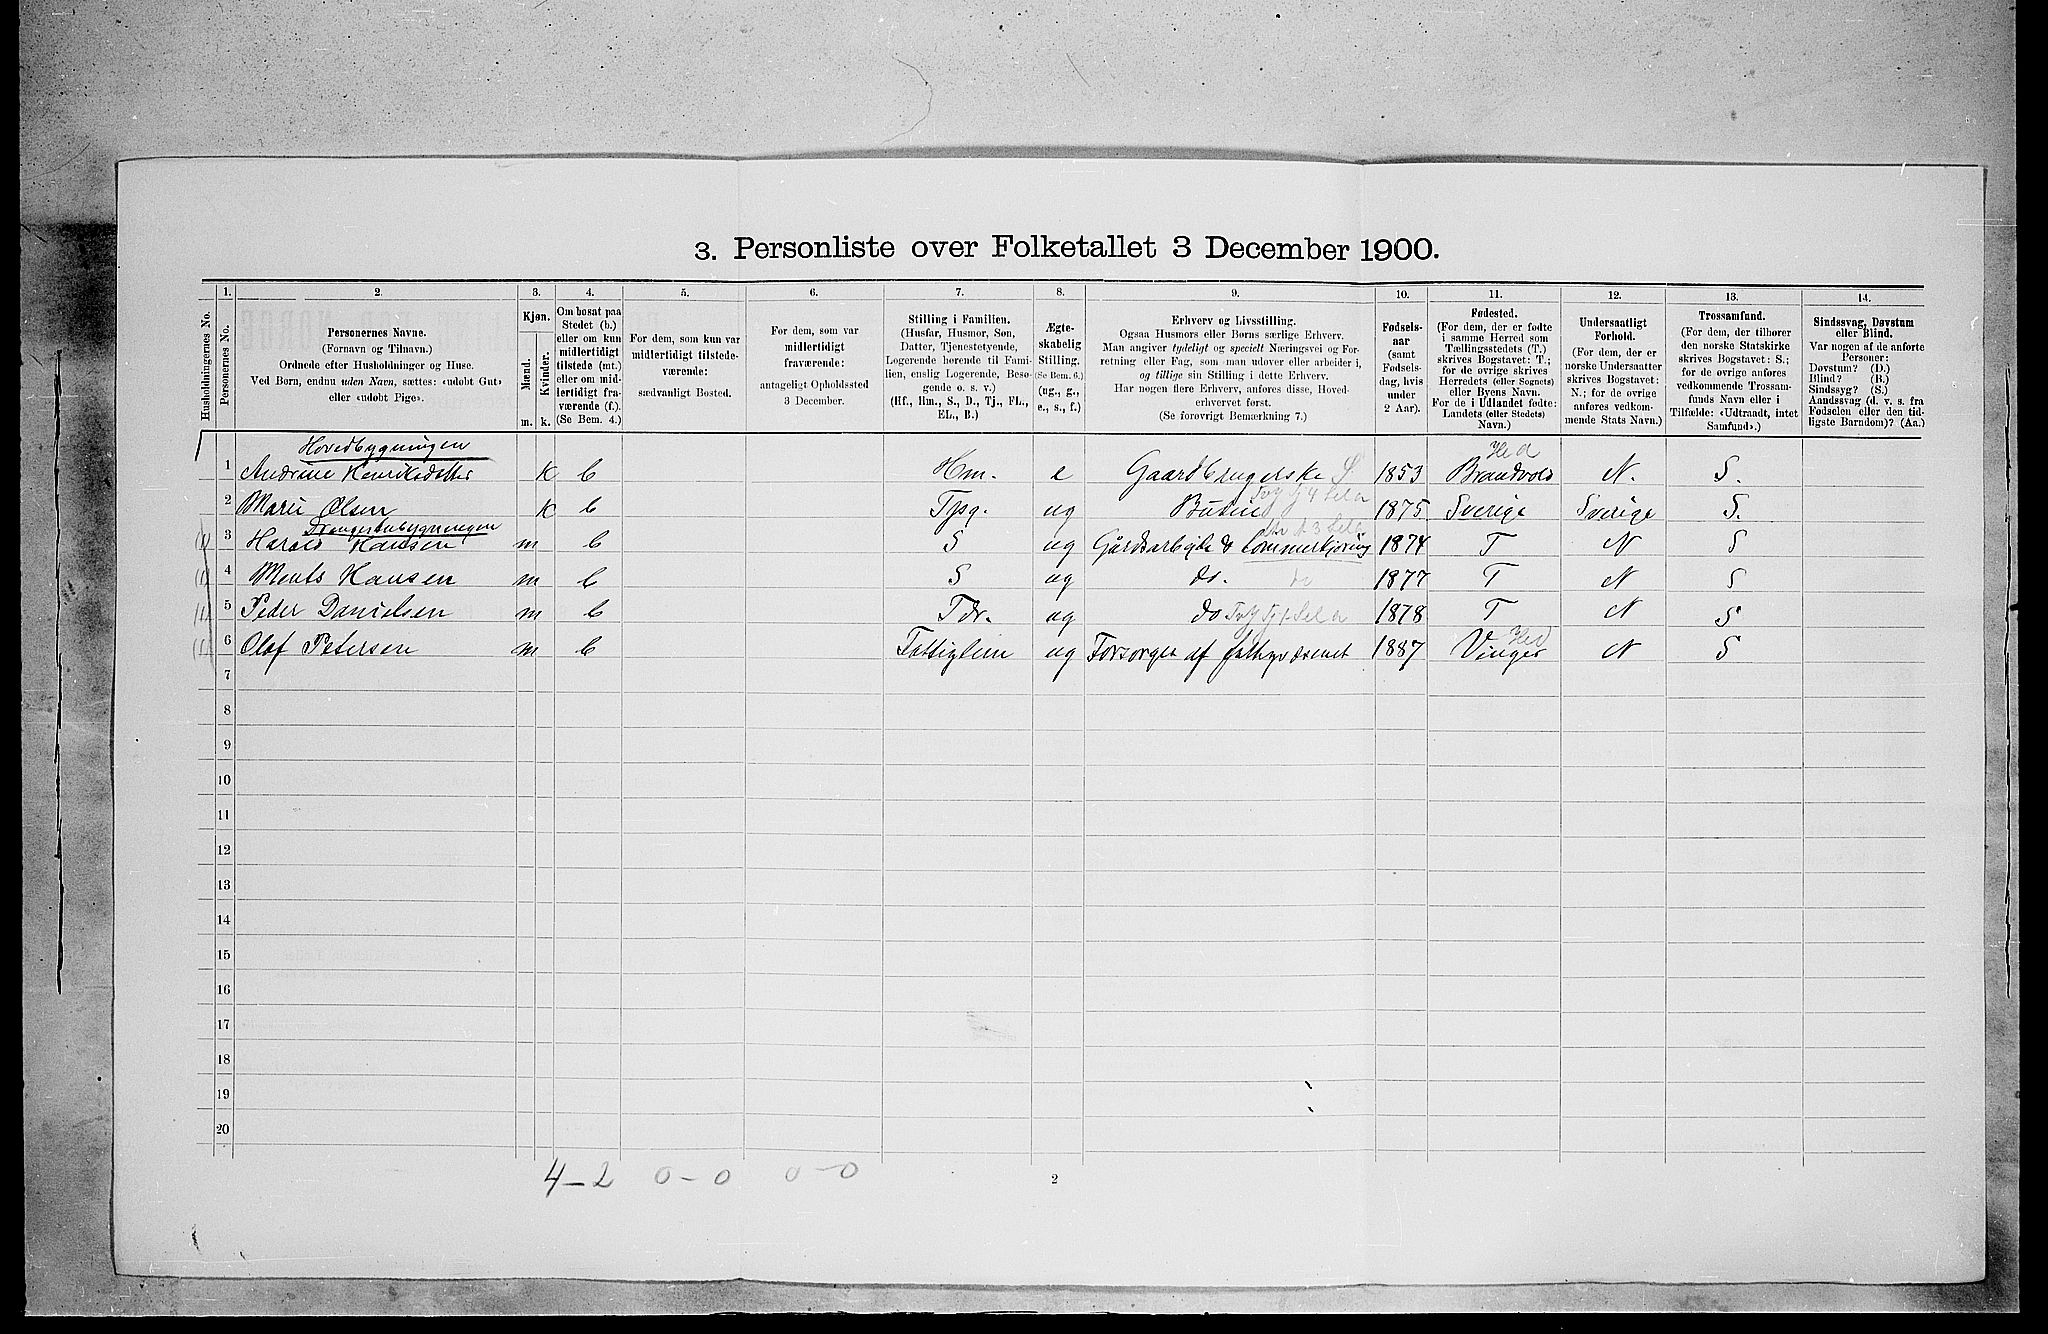 3. Personliste over Folketallet 3 December 1900.
1. 2. 3. 4. 5. 6. 7. 8. 9. 10. 11. 12. 13. 14.
Husholdningernes No.
Personernes No.
Personernes Navne.
(Fornavn og Tilnavn.)
Ordnede efter Husholdninger og Huse.
Ved Børn, endnu uden Navn, sættes: «udøbt Gut»
eller «udøbt Pige».
Kjøn.
Mænd. Kvinder.
m. k.
Om bosat paa
Stedet (b.)
eller om kun
midlertidigt
tilstede (mt.)
eller om mid-
lertidigt fra-
værende (f.)
(Se Bem. 4.)
For dem, som kun var
midlertidigt tilstede-
værende:
sædvanligt Bosted.
For dem, som var
midlertidigt
fraværende:
antageligt Opholdssted
3 December.
Stilling i Familien.
(Husfar, Husmor, Søn,
Datter, Tjenestetyende,
Logerende hørende til Fami-
lien, enslig Logerende, Besø-
gende o. s. v.)
(Hf., Hm., S., D., Tj., FL.,
EL., B.)
Ægte-
skabelig
Stilling.
(Se Bem. 6.)
(ug., g.,
e., s., f.)
Erhverv og Livsstilling.
Ogsaa Husmors eller Børns særlige Erhverv.
Man angiver tydeligt og specielt Næringsvei og For-
retning eller Fag, som man udøver eller arbeider i,
og tillige sin Stilling i dette Erhverv.
Har nogen flere Erhverv, anføres disse, Hoved-
erhvervet først.
(Se forøvrigt Bemærkning 7.)
Fødsels-
aar
(samt
Fødsels-
dag, hvis
under
2 Aar).
Fødested.
(For dem, der er fødte
i samme Herred som
Tællingsstedets (T.)
skrives Bogstavet: T.;
for de øvrige skrives
Herredets (eller Sognets)
eller Byens Navn.
For de i Udlandet fødte:
Landets (eller Stedets)
Navn.)
Undersaatligt
Forhold.
(For dem, der er
norske Undersaatter
skrives Bogstavet:
N.; for de øvrige
anføres vedkom-
mende Stats Navn.)
Trossamfund.
(For dem, der tilhører
den norske Statskirke
skrives Bogstavet: S.;
for de øvrige anføres
vedkommende Trossam-
funds Navn eller i
Tilfælde: «Udtraadt, intet
Samfund».)
Sindssvag, Døvstum
eller Blind.
Var nogen af de anførte
Personer:
Døvstum? (D.)
Blind? (B.)
Sindssyg? (S.)
Aandssvag (d. v. s. fra
Fødselen eller den tid-
ligste Barndom)? (Aa.)
Hovedbygningen
1 Andrine Henriksdatter k b Hm. e Gaardbrugerske S 1853 Brandvold Hed N. S.
2 Marie Olsen k b Tjpg. ug 1875 Sverige Sverige S.
Drengestubygningen
3 Harald Hansen m b S ug Gårdsarbeide & tømmerkjøring 1874 T N S
4 Hansen m b S ug do. do 1877 T N S
5 Peder Danielsen m b Tdr. ug do 1878 T N S
6 Olaf Petersen m b Fattiglem ug Forsørges af fattigvæsenet 1887 Vinger Hed N S
7
8
9
10
11
12
13
14
15
16
17
18
19
20
4-2 0-0 0-0
2